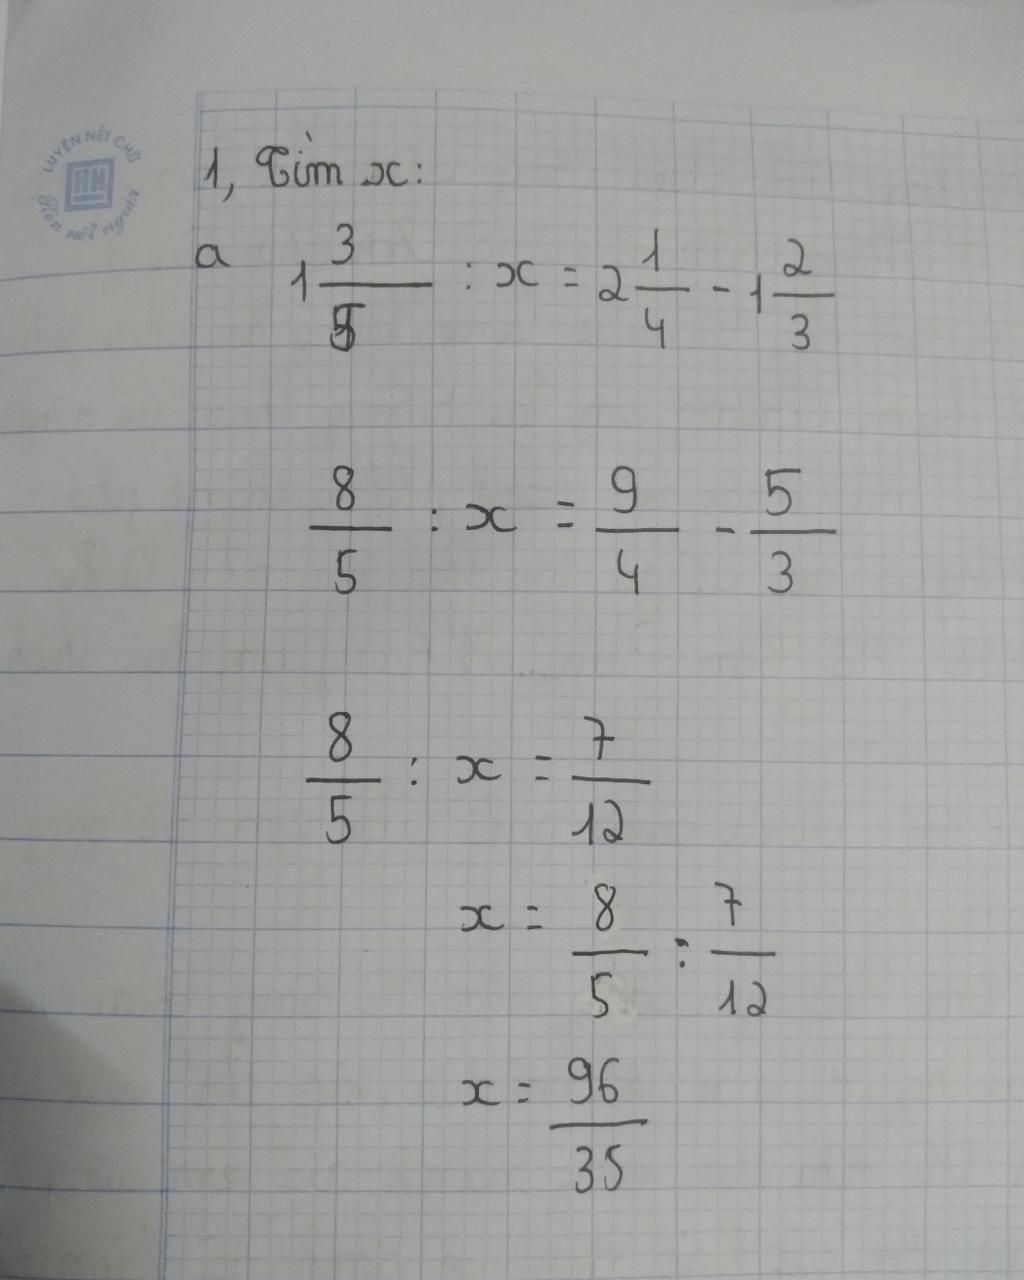 LUYỆN NÉT CHỮ
HN
Rèn nết người
1, Tìm x:
a 1 3/5 : x = 2 1/4 - 1 2/3
8/5 : x = 9/4 - 5/3
8/5 : x = 7/12
x = 8/5 : 7/12
x = 96/35